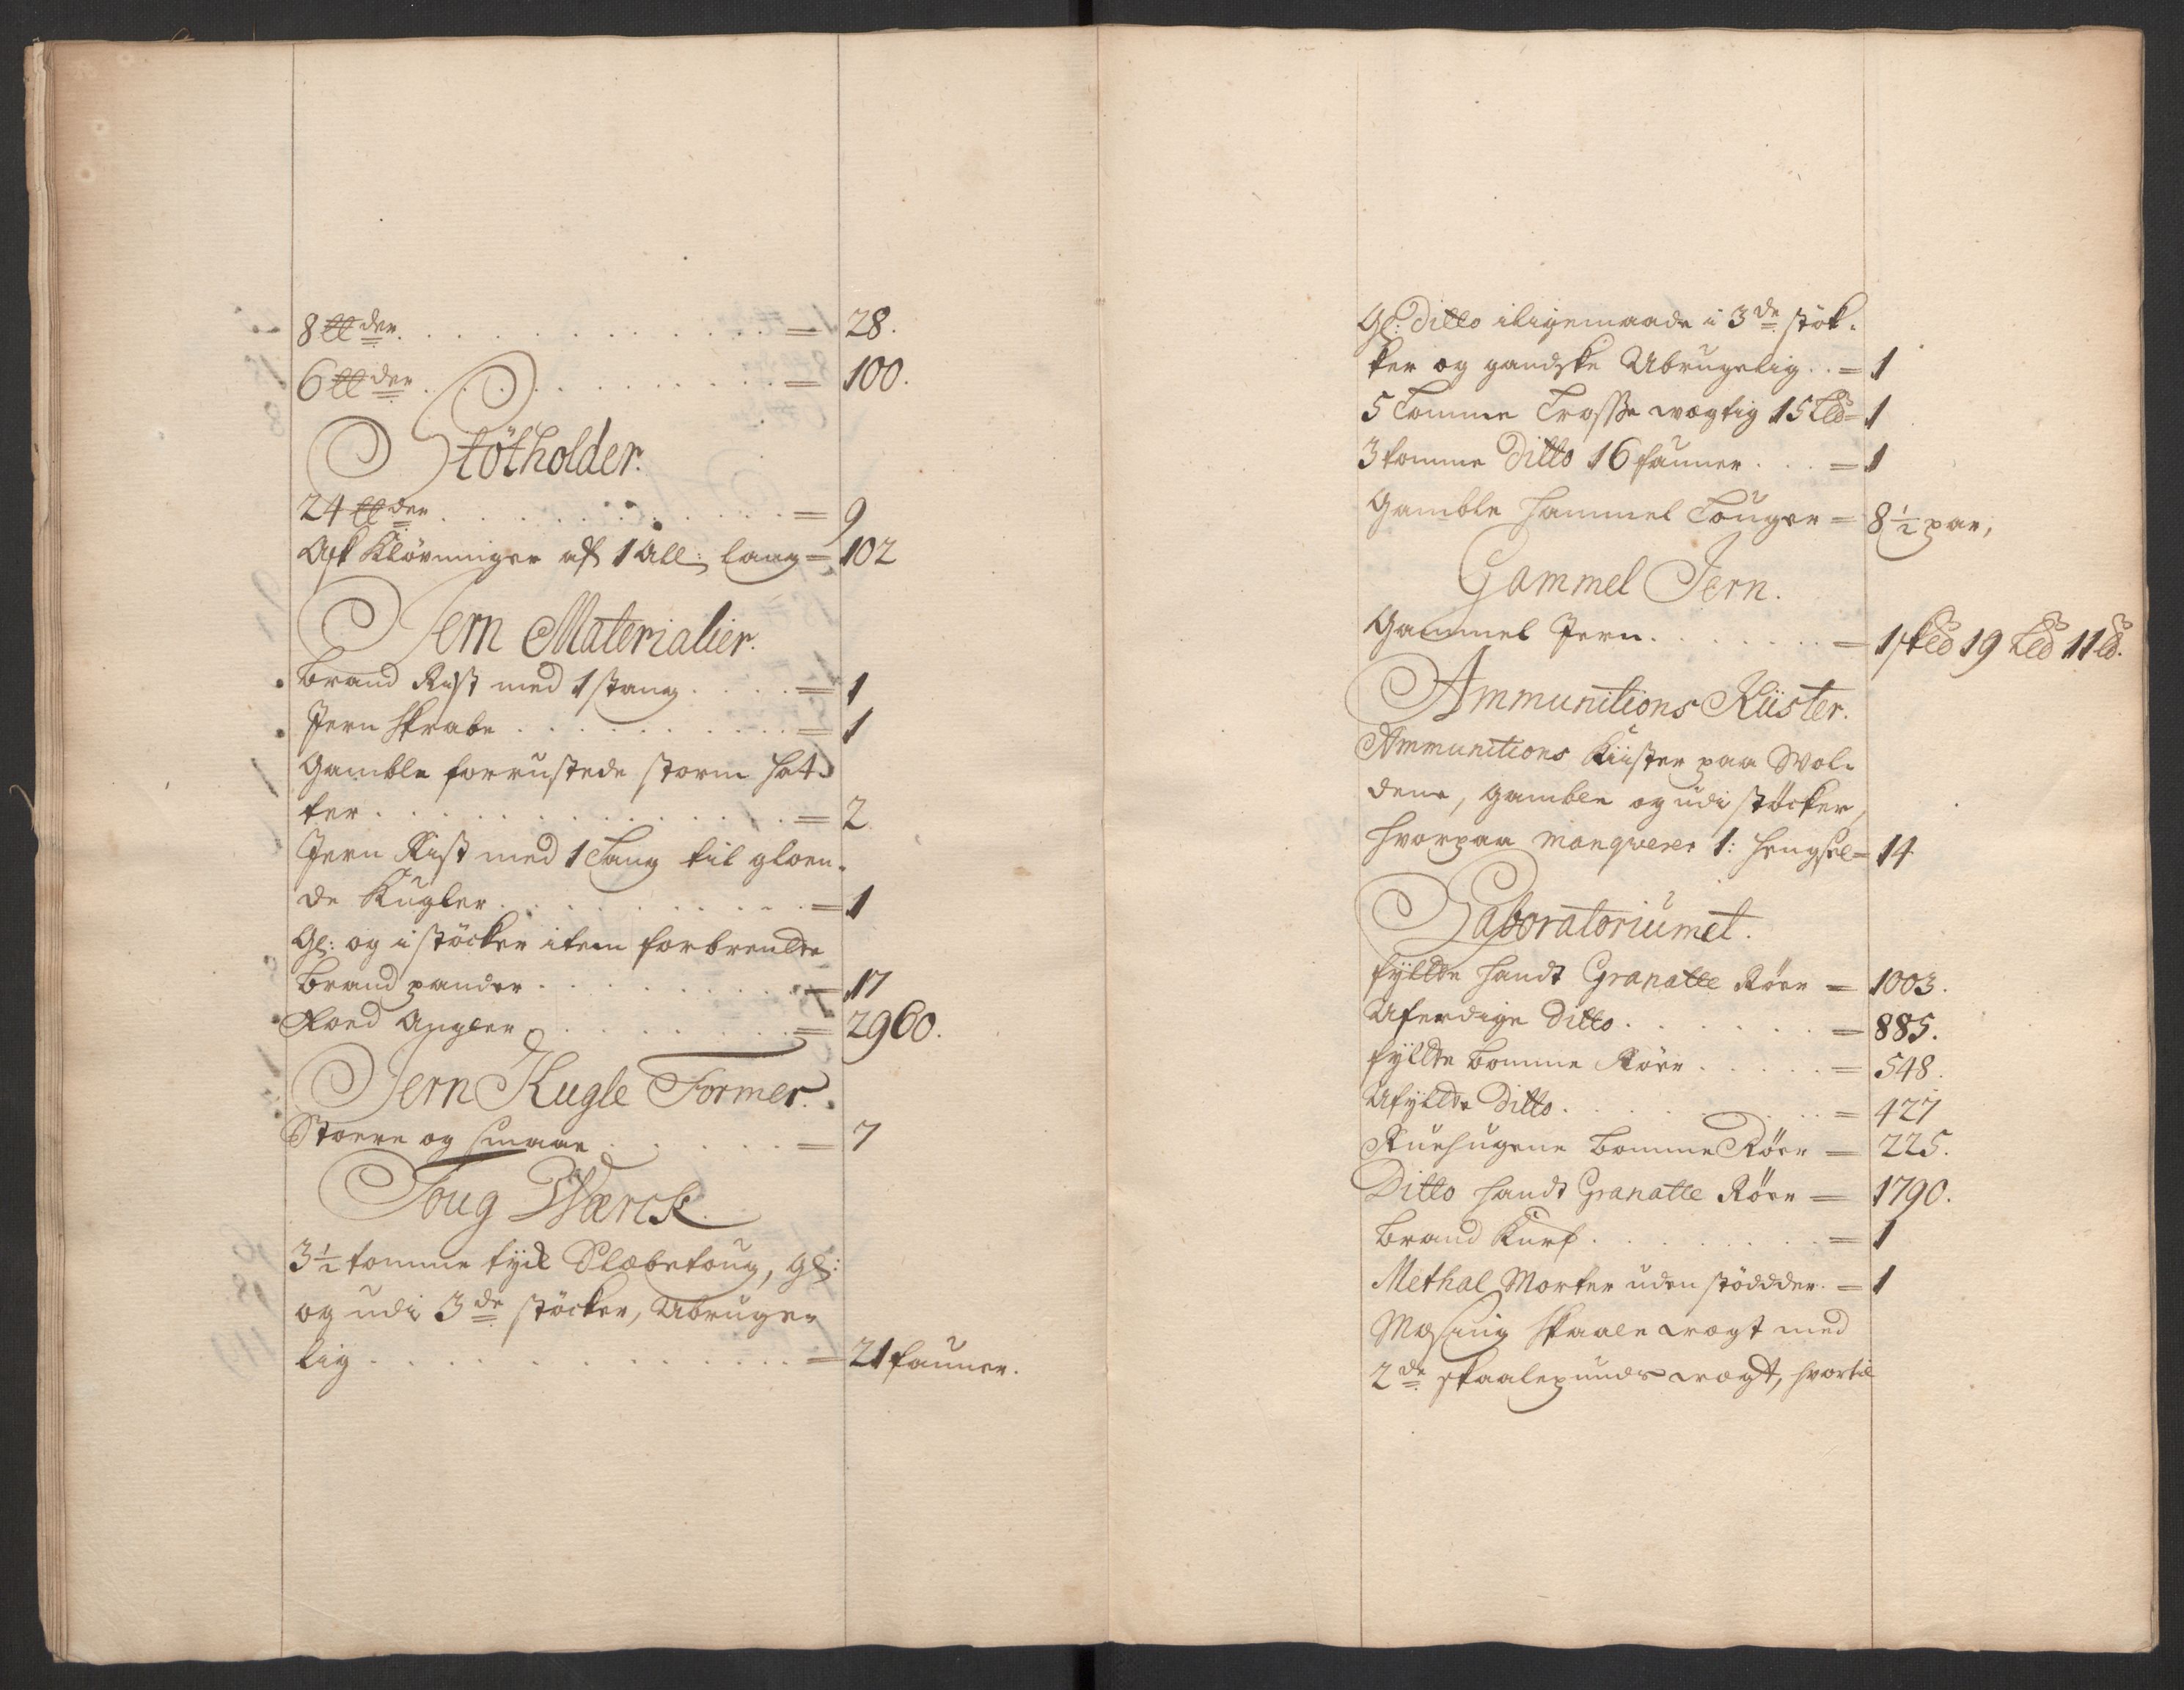 8 ℔der . . . . . = 28.
6 ℔der . . . . . = 100.
Stötholder.
24 ℔der . . . . . = 9
Ask Kløvninger af 1 All: lang = 102
Jern Materialier.
Brand Rist med 1 stang . . . . = 1
Jern Skrabe . . . . . = 1
Gamble forrustede storm hat-
ter . . . . . = 2
Jern Rist med 1 Tang til gloen-
de Kugler . . . . . = 1
Gl: og i støcker item forbrendte
Brand pander . . . . . = 17
Foed Angler . . . . . = 2960.
Jern Kugle Former.
Stoere og smaae . . . . . = 7
Toug Wærck.
3½ tomme tyck Slæbetoug, gl:
og udi 3de støcker, Ubruge-
lig . . . . . = 21 faune.
Gl: Ditto iligemaade i 3de støk-
ker og gandske Ubrugelig . . = 1
5 Tomme Trosse wægtig 15 L℔ = 1
3 tomme Ditto 16 fauner . . . = 1
Gamble Hammel Touger = 8½ par,
Gammel Jern.
Gammel Jern . . . . . = 1 sk℔ 19 L℔ 11 ℔.
Ammunitions Kiister.
Ammunitions Kiister paa Vol-
dene, gamble og udi støcker,
hvorpaa manqverer 1: Hengsel = 14
Laboratoriumet.
fyldte Handt Granatte Röer = 1003.
Uferdige Ditto . . . . . = 885.
fyldte Bomme Röer . . . . . = 548.
Ufyldte Ditto . . . . . = 427
Ruehugne Bomme Röer = 225.
Ditto Handt Granatte Röer = 1790.
Brand Kurf . . . . . = 1
Methal Morter uden stöddder. = 1
Messing Skaale wægt med
2de skaalepunds wægt, hvortil